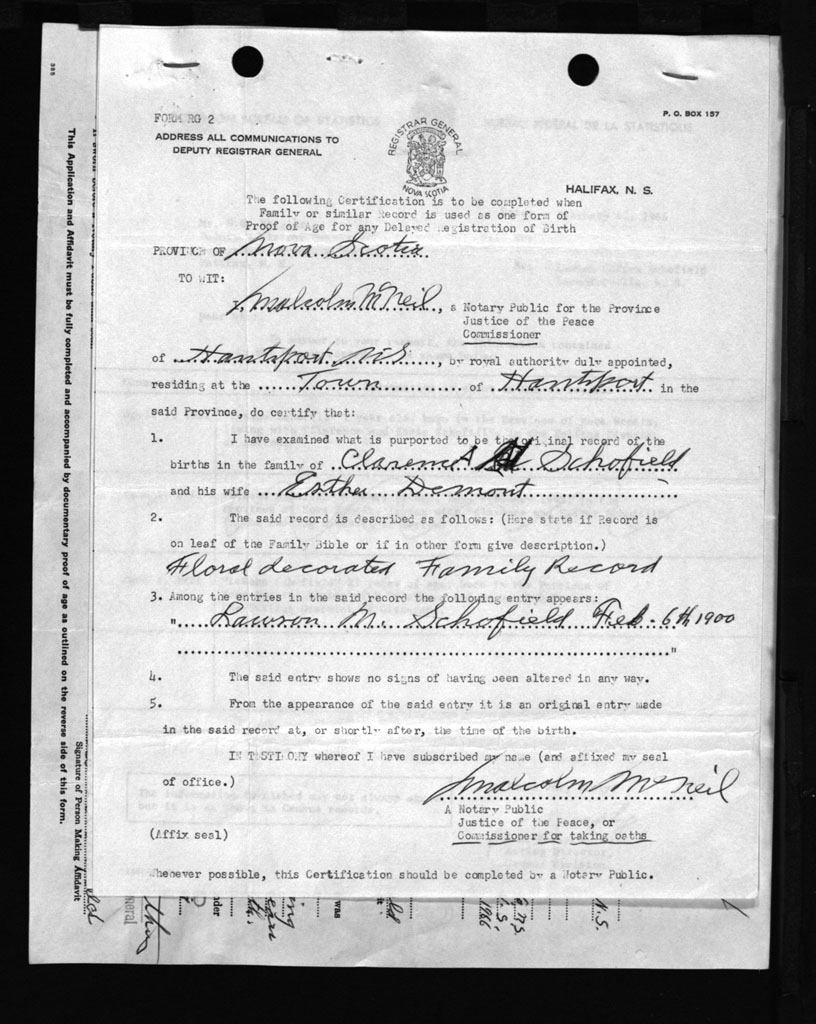 FORM RG 2
P. O. BOX 157
ADDRESS ALL COMMUNICATIONS TO
DEPUTY REGISTRAR GENERAL
REGISTRAR GENERAL
NOVA SCOTIA
HALIFAX, N. S.
The following Certification is to be completed when
Family or similar Record is used as one form of
Proof of Age for any Delayed Registration of Birth
PROVINCE OF Nova Scotia
TO WIT:
I, Malcolm McNeil, a Notary Public for the Province
Justice of the Peace
Commissioner
of Hantsport N.S., by royal authority duly appointed,
residing at the Town of Hantsport in the
said Province, do certify that:
1. I have examined what is purported to be the original record of the
births in the family of Schofield
and his wife Esther Demont
2. The said record is described as follows: (Here state if Record is
on leaf of the Family Bible or if in other form give description.)
Floral decorated Family Record
3. Among the entries in the said record the following entry appears:
" Lawson M. Schofield Feb. 6th 1900
"
4. The said entry shows no signs of having been altered in any way.
5. From the appearance of the said entry it is an original entry made
in the said record at, or shortly after, the time of the birth.
IN TESTIMONY whereof I have subscribed my name (and affixed my seal
of office.)
Malcolm McNeil
A Notary Public
Justice of the Peace, or
Commissioner for taking oaths
(Affix seal)
Whenever possible, this Certification should be completed by a Notary Public.
This Application and Affidavit must be fully completed and accompanied by documentary proof of age as outlined on the reverse side of this form.
Signature of Person Making Affidavit
nder
was
1966
N.S.